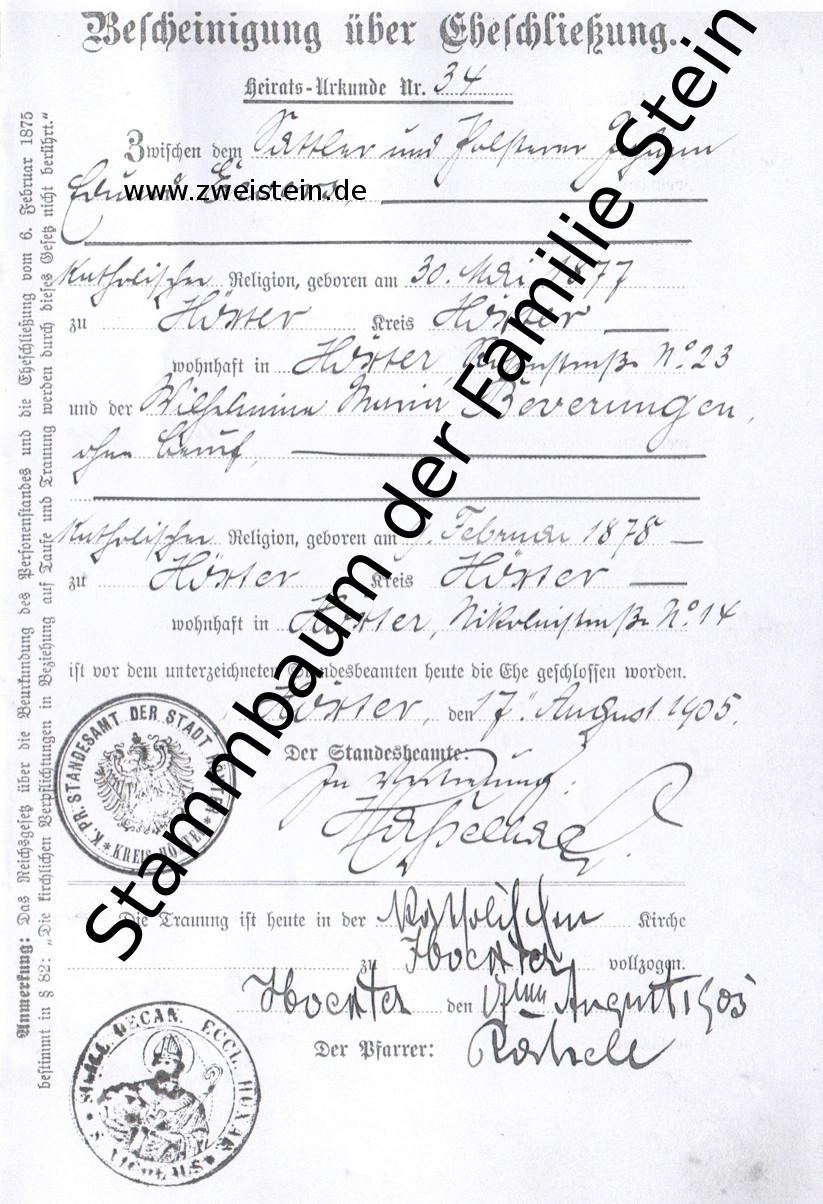 Bescheinigung über Eheschließung.
Heirats-Urkunde Nr. 34
Zwischen dem Sattler und Polsterer Johann
Eduard
www.zweistein.de
katholischer Religion, geboren am 30. Mai 1877
zu Höxter Kreis Höxter
wohnhaft in Höxter, No. 23
und der Wilhelmina Maria Beverungen,
ohne Beruf,
katholischer Religion, geboren am Februar 1878
zu Höxter Kreis Höxter
wohnhaft in Höxter, Nikolaistraße No. 14
ist vor dem unterzeichneten Standesbeamten heute die Ehe geschlossen worden.
Höxter, den 17. August 1905.
Der Standesbeamte:
In Vertretung:
K. PR. STANDESAMT DER STADT HÖXTER
* KREIS HÖXTER *
Die Trauung ist heute in der katholischen Kirche
zu Hoexter vollzogen.
Hoexter den 17ten August 1905
Der Pfarrer:
SIGILL. DECAN. ECCL. HUXAR.
S. NICOLAUS
Anmerkung: Das Reichsgesetz über die Beurkundung des Personenstandes und die Eheschließung vom 6. Februar 1875
bestimmt in § 82: „Die kirchlichen Verpflichtungen in Beziehung auf Taufe und Trauung werden durch dieses Gesetz nicht berührt.“
Stammbaum der Familie Stein